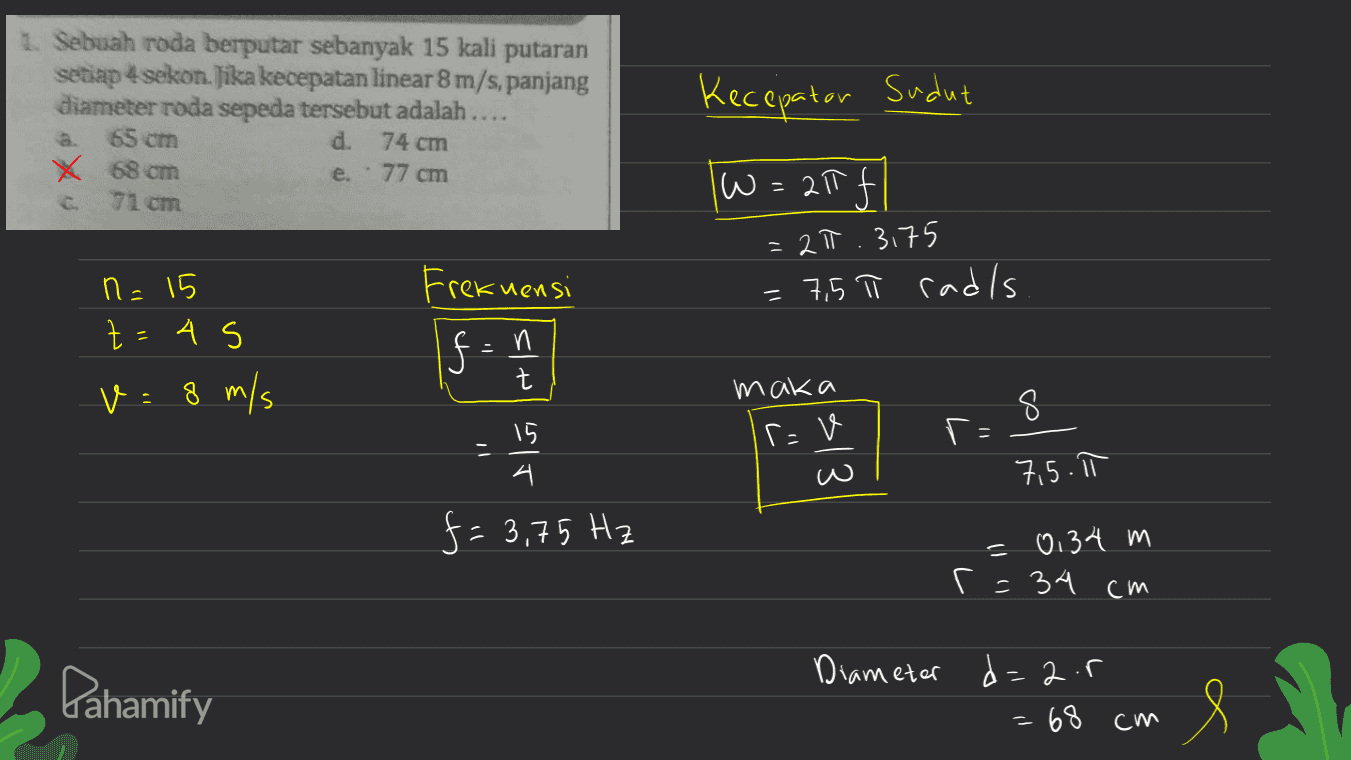 1. Sebuah roda berputar sebanyak 15 kali putaran
setiap 4 sekon. Jika kecepatan linear 8 m/s, panjang
diameter roda sepeda tersebut adalah ....
a. 65 cm d. 74 cm
68 cm e. 77 cm
c. 71 cm
n = 15
t = 4 s
v = 8 m/s
Frekuensi
f = n/t
= 15/4
f = 3,75 Hz
Kecepatan Sudut
W = 2π f
= 2π . 3,75
= 7,5 π rad/s.
maka
r = v/ω
r = 8/7,5.π
= 0,34 m
r = 34 cm
Diameter d = 2.r
= 68 cm
Pahamify